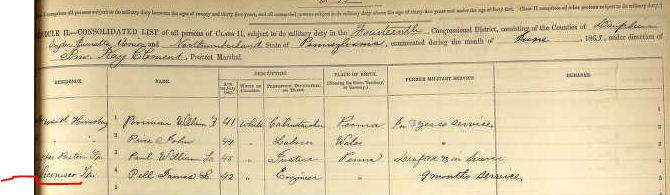 comprises all persons subject to military duty between the ages of twenty and thirty-five years, and all unmarried persons subject to military duty above the age of thirty-five years and under the age of forty-five. Class II comprises all other persons subject to military duty.
II.—CONSOLIDATED LIST of all persons of CLASS II, subject to military duty in the Fourteenth Congressional District, consisting of the Counties of Dauphin
Juniata Union and Northumberland State of Pennsylvania, enumerated during the month of June 1863, under direction of
Jno. Kay Clement, Provost Marshal.
RESIDENCE NAME. DESCRIPTION PLACE OF BIRTH FORMER MILITARY SERVICE REMARKS
AGE WHITE OR COLORED. PROFESSION, OCCUPATION, OR TRADE (Naming the State, Territory, or Country.)
1 Porman William F 41 White Cabinetmaker Penna In 3 years service 1
2 Price John 44 " Laborer Wales " 2
Paxton Tp. 3 Paul William L. " Justice Penna 3
Tp. 4 Pell James L. 42 " Engineer " 9 months service 4
5 5